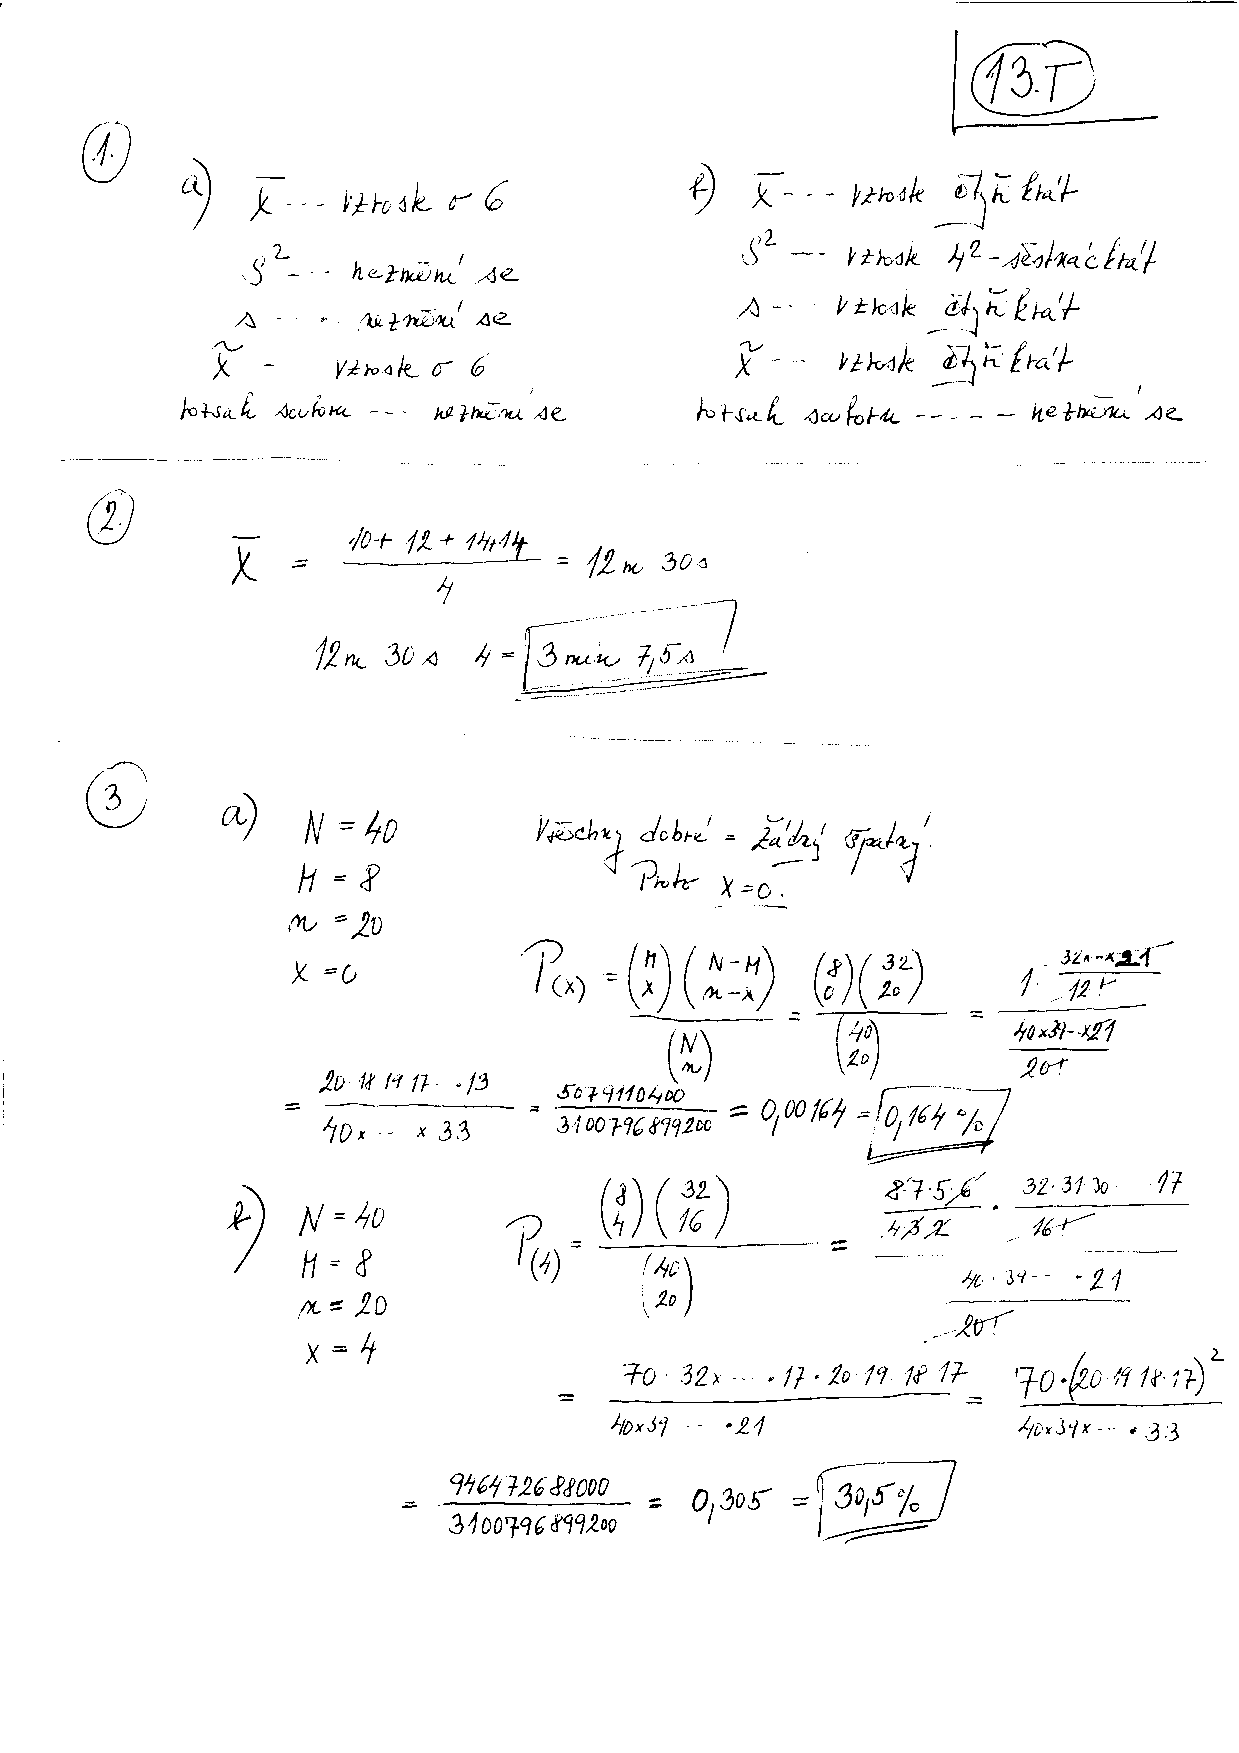 13.T
1.
a) x̄ --- vzroste o 6
s² --- nezmění se
s ---- nezmění se
x̃ - vzroste o 6
rozsah souboru --- nezmění se
b) x̄ --- vzroste čtyřikrát
s² --- vzroste 4² - šestnáctkrát
s --- vzroste čtyřikrát
x̃ --- vzroste čtyřikrát
rozsah souboru ----- nezmění se
2.
x̄ = (10 + 12 + 14+14) / 4 = 12m 30s
12m 30s 4 = 3 min 7,5s
3
a) N = 40
M = 8
n = 20
x = 0
Všechny dobré = žádný špatný.
Proto x = 0.
P(x) = (M x)(N-M n-x) / (N n) = (8 0)(32 20) / (40 20) = 1 · (32x--x21 / 12!) / (40x39--x21 / 20!)
= 20·18 19 17 · ·13 / 40x -- x 33 = 5079110400 / 3100796899200 = 0,00164 = 0,164 %
b) N = 40
M = 8
n = 20
x = 4
P(4) = (8 4)(32 16) / (40 20) = (8·7·5·6 / 4 3 2 · 32·31·30 · 17 / 16!) / (40·39-- ·21 / 20!)
= 70 · 32x --- · 17 · 20·19·18 17 / 40x39 -- ·21 = 70·(20·19 18·17)² / 40x39x -- · 33
= 946472688000 / 3100796899200 = 0,305 = 30,5 %